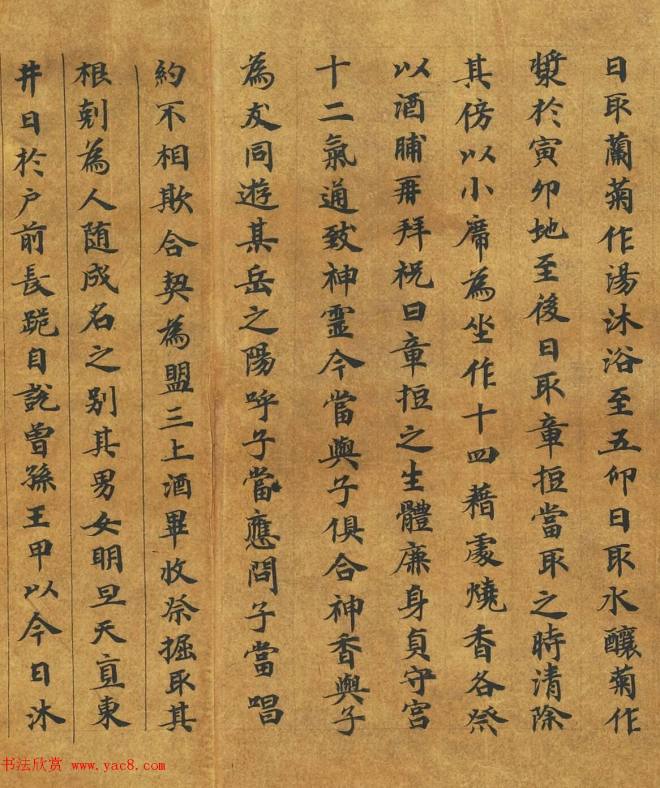 日取蘭菊作湯沐浴至五卯日取水釀菊作
漿於寅卯地至後日取章拒當取之時清除
其傍以小席為坐作十四藉處燒香各祭
以酒脯再拜祝曰章拒之生體廉身貞守宮
十二氣通致神靈今當與子俱合神香與子
為友同遊某岳之陽呼子當應問子當唱
約不相欺合契為盟三上酒畢收祭掘取其
根剋為人随成名之別其男女明旦天直東
井日於户前長跪自說曾孫王甲以今日沐
书法欣赏 www.yac8.com